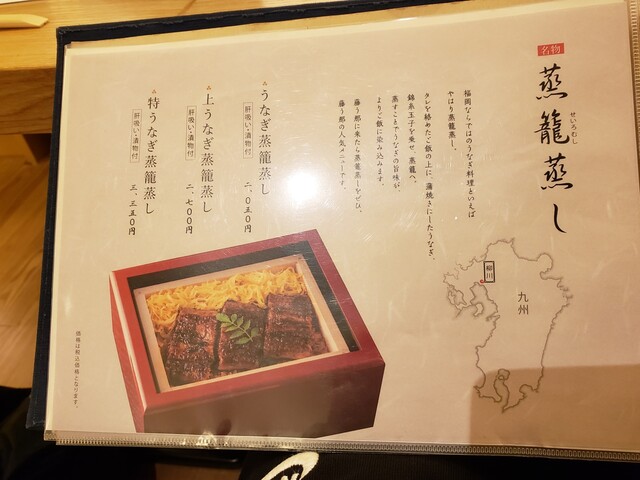 名物
蒸籠蒸し
せいろむし
福岡ならではのうなぎ料理といえば
やはり蒸籠蒸し。
タレを絡めたご飯の上に、蒲焼きにしたうなぎ、
錦糸玉子を乗せ、蒸籠へ。
蒸すことでうなぎの旨味が
よりご飯に染み込みます。
藤う那に来たら蒸籠蒸しをぜひ。
藤う那の人気メニューです。
うなぎ蒸籠蒸し
肝吸い・漬物付
二、〇五〇円
上うなぎ蒸籠蒸し
肝吸い・漬物付
二、七〇〇円
特うなぎ蒸籠蒸し
肝吸い・漬物付
三、三五〇円
柳川
九州
価格は税込価格となります。